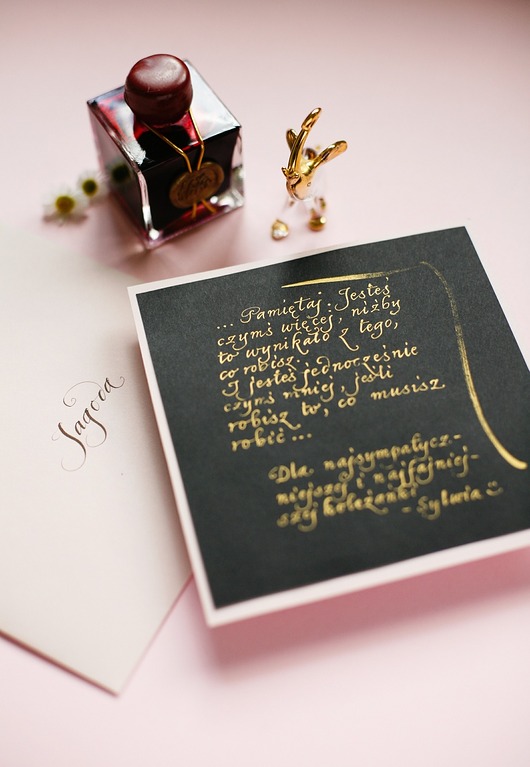 Jagoda
... Pamiętaj: Jesteś
czymś więcej, niżby
to wynikało z tego,
co robisz...
I jesteś jednocześnie
czymś mniej, jeśli
robisz to, co musisz
robić...
Dla najsympatycz-
niejszej i najfajniej-
szej koleżanki
- Sylwia